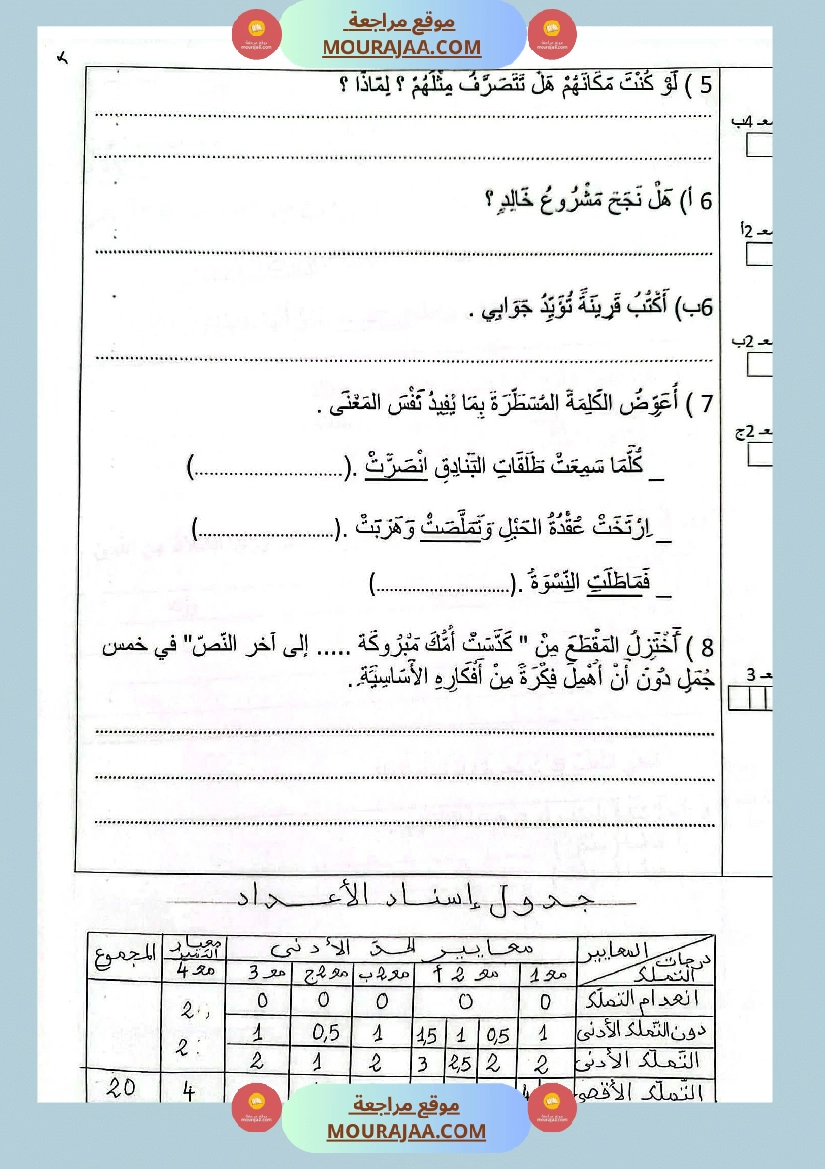 موقع مراجعة
MOURAJAA.COM
5 ) لَوْ كُنْتَ مَكَانَهُمْ هَلْ تَتَصَرَّفُ مِثْلَهُمْ ؟ لِمَاذَا ؟
معـ 4ب
6 أ) هَلْ نَجَحَ مَشْرُوعُ خَالِدٍ ؟
معـ 2أ
6ب) أَكْتُبُ قَرِينَةً تُؤَيِّدُ جَوَابِي .
معـ 2ب
7 ) أُعَوِّضُ الكَلِمَةَ المُسَطَّرَةَ بِمَا يُفِيدُ نَفْسَ المَعْنَى .
معـ 2ج
_ كُلَّمَا سَمِعَتْ طَلَقَاتِ البَنَادِقِ انْصَرَّتْ .(..............................)
_ اِرْتَخَتْ عُقْدَةُ الحَبْلِ وَتَمَلَّصَتْ وَهَرَبَتْ .(............................)
_ فَمَاطَلَتِ النِّسْوَةُ .(............................)
8 ) أَخْتَزِلُ المَقْطَعَ مِنْ " كَدَّسَتْ أُمُّكَ مَبْرُوكَة ..... إلى آخر النّصّ" في خمس
جُمَلٍ دُونَ أَنْ أُهْمِلَ فِكْرَةً مِنْ أَفْكَارِهِ الأَسَاسِيَّةِ .
معـ 3
جدول إسناد الأعداد
المعايير معايير الحدّ الأدنى معيار التميز المجموع
درجات التملك معـ 1 معـ 2 أ معـ 2 ب معـ 2 ج معـ 3 معـ 4
انعدام التملك 0 0 0 0 0
دون التملك الأدنى 1 0,5 1 1,5 1 0,5 1 2
التملك الأدنى 2 2 2,5 3 2 1 2 2
التملك الأقصى 4 20
موقع مراجعة
MOURAJAA.COM